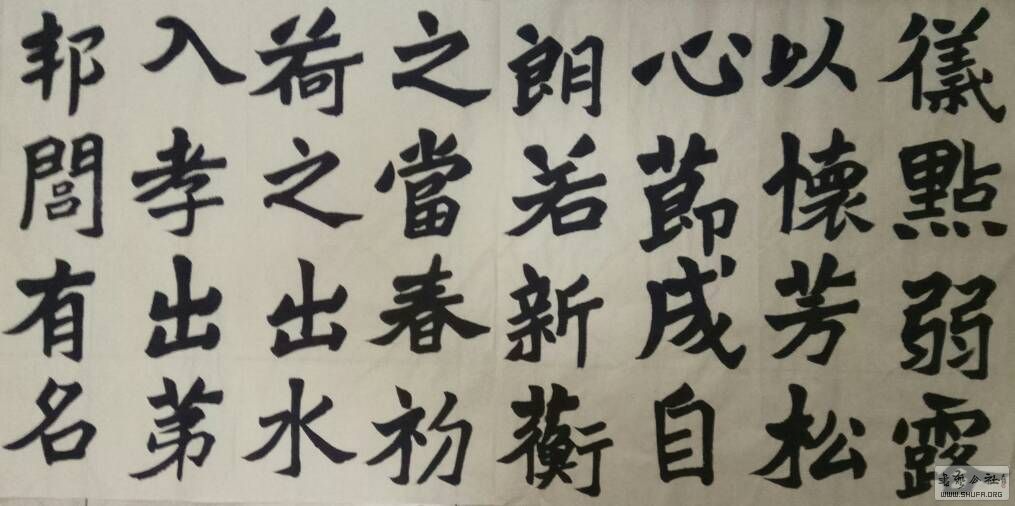 儀點弱露
以懷芳松
心莭成自
朗若新蘅
之當春初
荷之出水
入孝出苐
邦閭有名
WWW.SHUFA.ORG